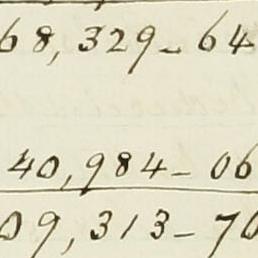 68,329-64
40,984-06
09,313-70